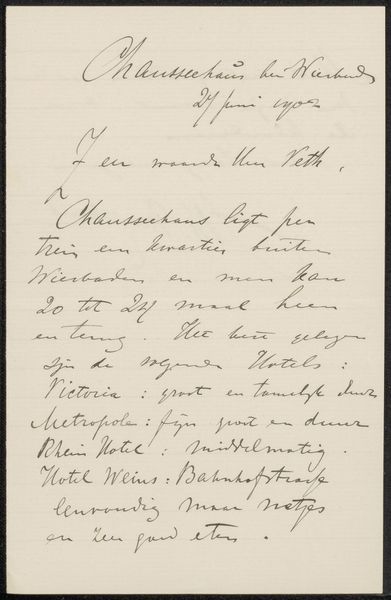 Chausseehaus bei Wiesbaden
24 Juni 1902
Z en waarde Heer Veth,
Chausseehaus ligt per
trein een kwartier buiten
Wiesbaden en men kan
20 tot 24 maal heen
en terug. Het best gelegen
zijn de volgende Hotels:
Victoria: groot en tamelijk duur
Metropole: fijn groot en duur
Rhein Hotel: middelmatig.
Hotel Weins: Bahnhofstrasse
eenvoudig maar netjes
en zeer goed eten.